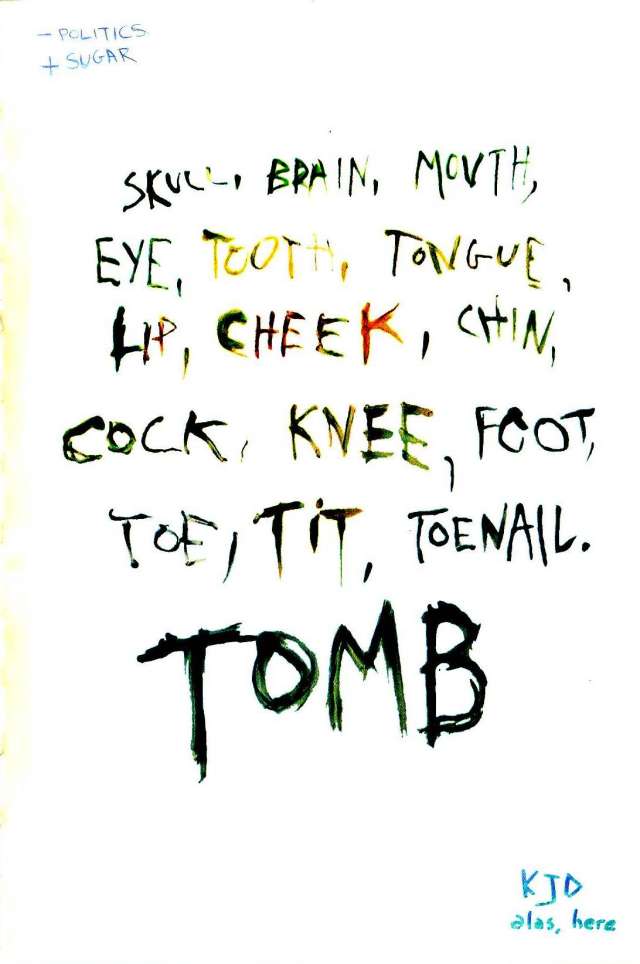 - POLITICS
+ SUGAR
SKULL, BRAIN, MOUTH,
EYE, TOOTH, TONGUE,
LIP, CHEEK, CHIN,
COCK, KNEE, FOOT,
TOE, TIT, TOENAIL.
TOMB
KJD
alas, here